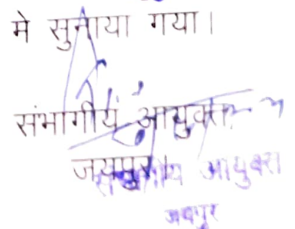 मे सुनाया गया।
संभागीय आयुक्त
जयपुर।
संभागीय आयुक्त
जयपुर